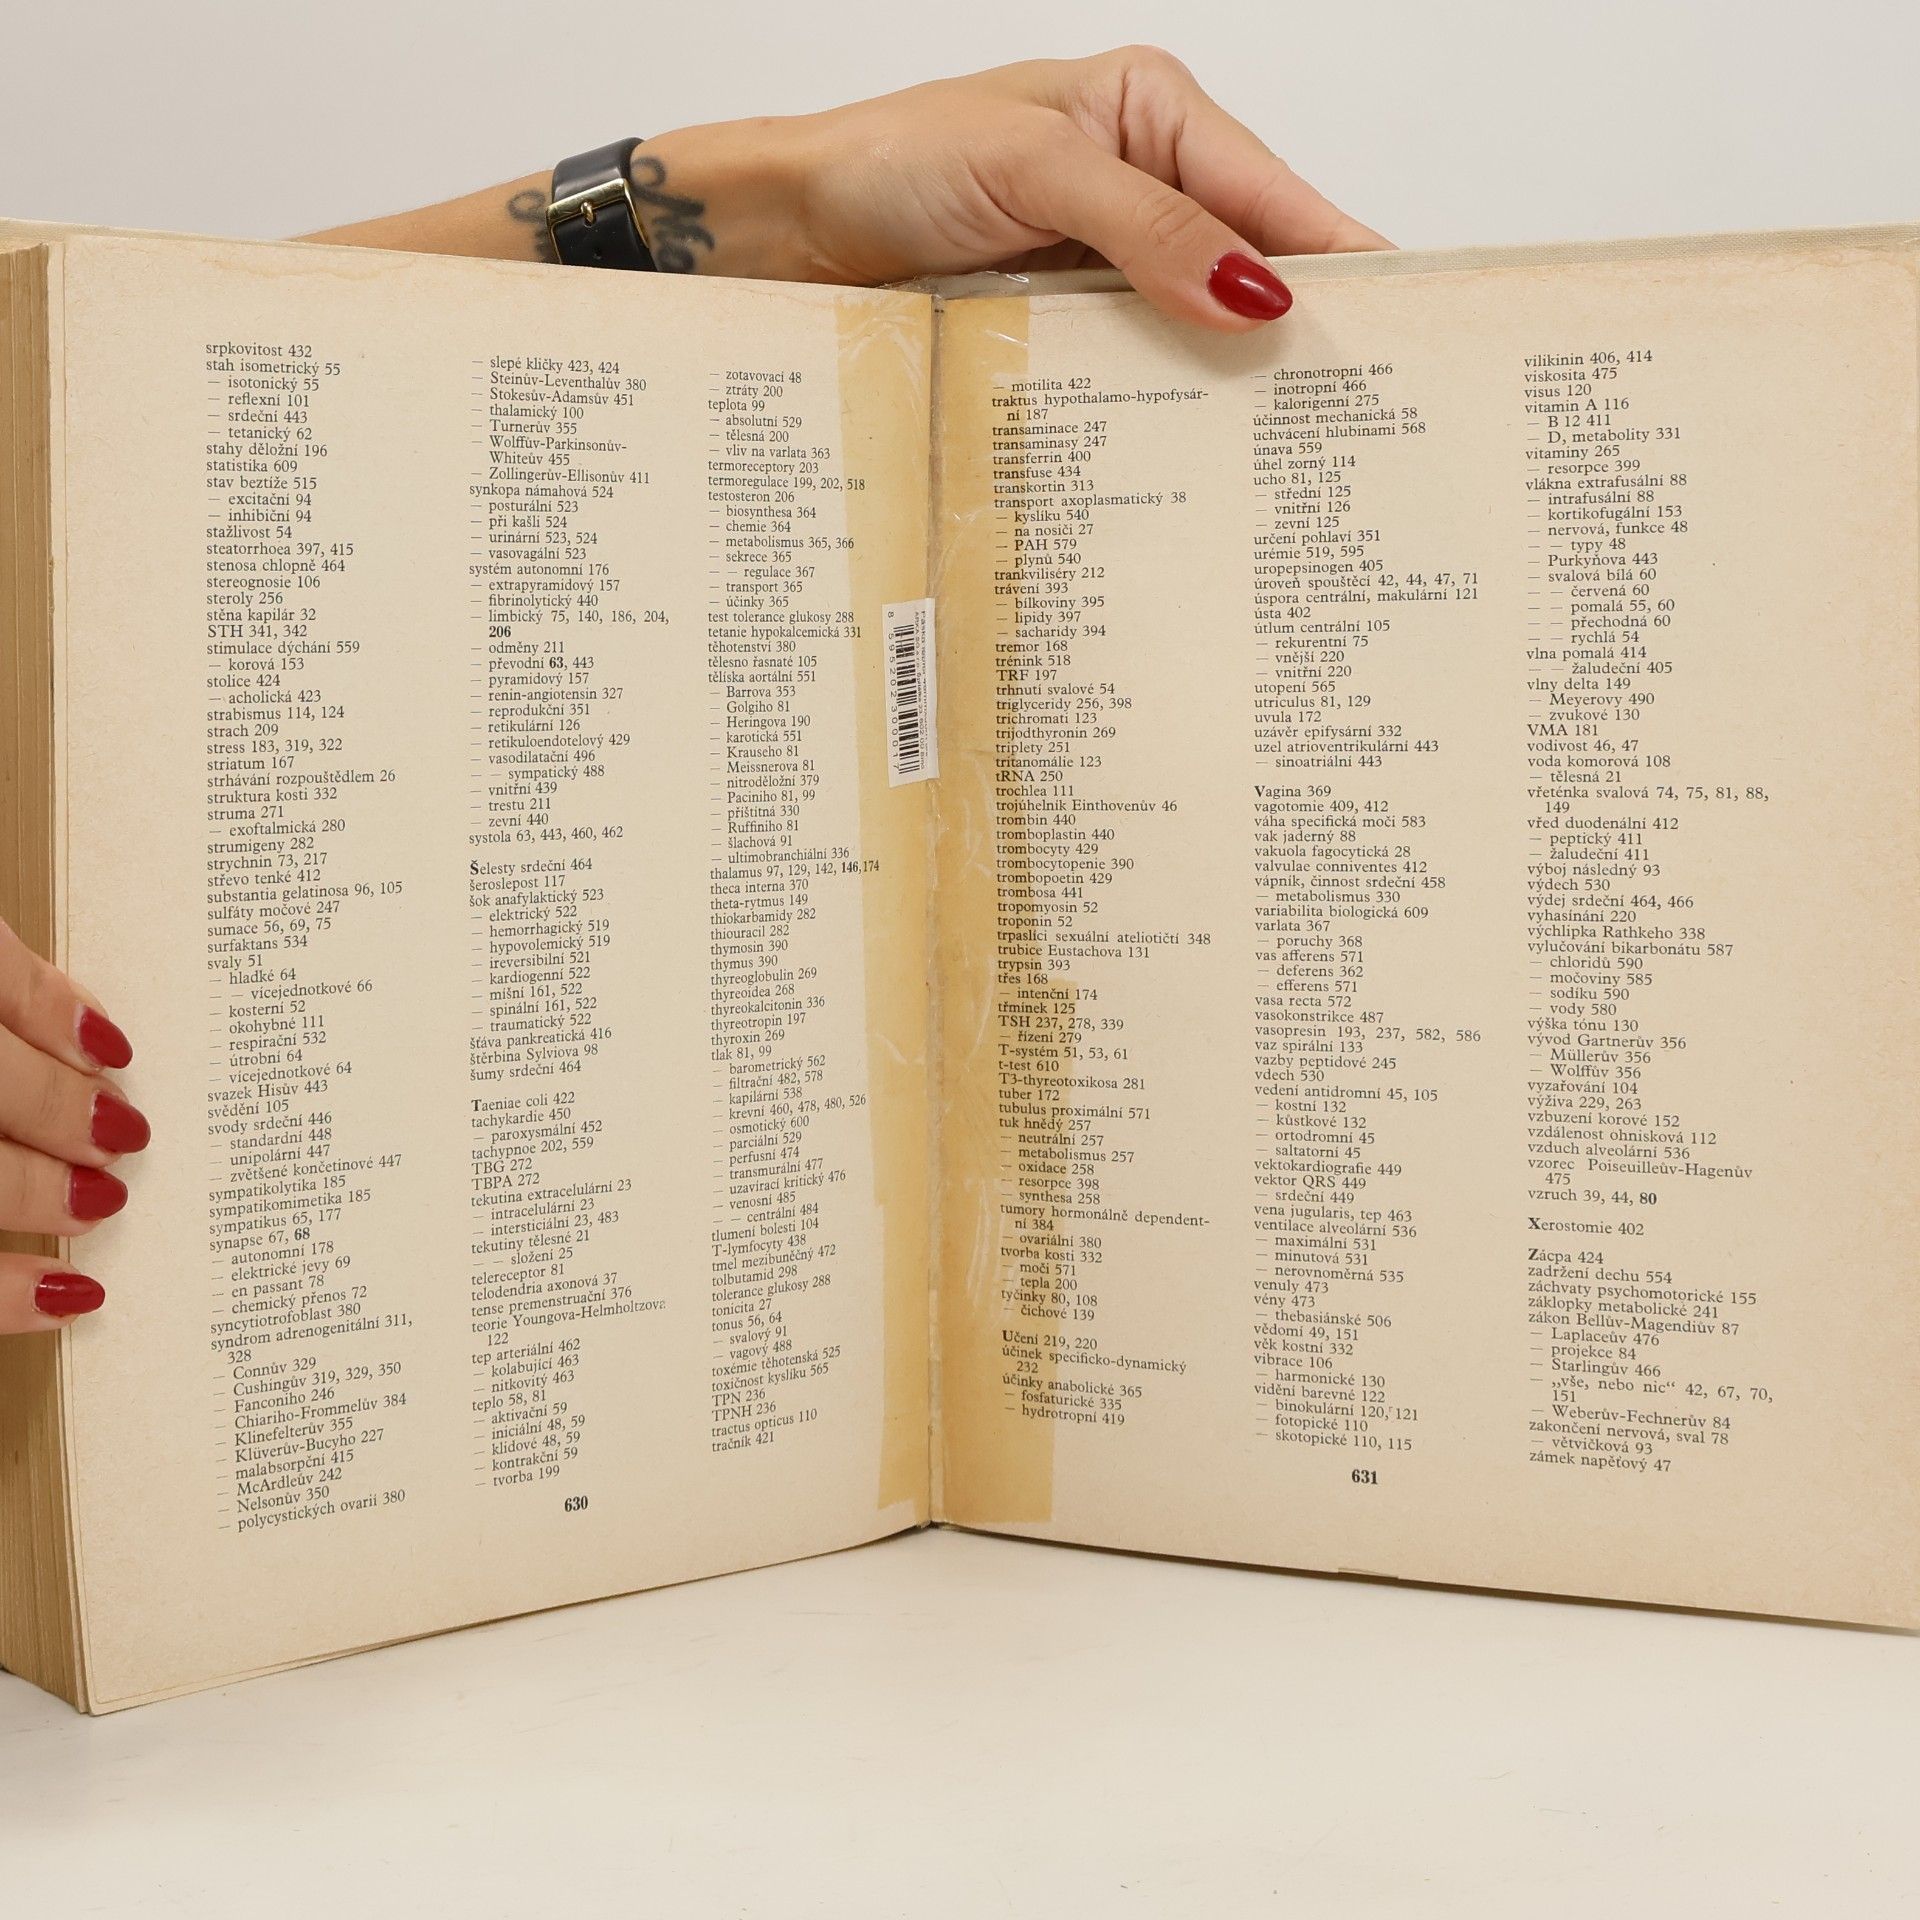 srpkovitost 432
stah isometrický 55
— isotonický 55
— reflexní 101
— srdeční 443
— tetanický 62
stahy děložní 196
statistika 609
stav beztíže 515
— excitační 94
— inhibiční 94
stažlivost 54
steatorrhoea 397, 415
stenosa chlopně 464
stereognosie 106
steroly 256
stěna kapilár 32
STH 341, 342
stimulace dýchání 559
— korová 153
stolice 424
— acholická 423
strabismus 114, 124
strach 209
stress 183, 319, 322
striatum 167
strhávání rozpouštědlem 26
struktura kosti 332
struma 271
— exoftalmická 280
strumigeny 282
strychnin 73, 217
střevo tenké 412
substantia gelatinosa 96, 105
sulfáty močové 247
sumace 56, 69, 75
surfaktans 534
svaly 51
— hladké 64
— — vícejednotkové 66
— kosterní 52
— okohybné 111
— respirační 532
— útrobní 64
— vícejednotkové 64
svazek Hisův 443
svědění 105
svody srdeční 446
— standardní 448
— unipolární 447
— zvětšené končetinové 447
sympatikolytika 185
sympatikomimetika 185
sympatikus 65, 177
synapse 67, 68
— autonomní 178
— elektrické jevy 69
— en passant 78
— chemický přenos 72
syncytiotrofoblast 380
syndrom adrenogenitální 311,
328
— Connův 329
— Cushingův 319, 329, 350
— Fanconiho 246
— Chiariho-Frommelův 384
— Klinefelterův 355
— Klüverův-Bucyho 227
— malabsorpční 415
— McArdleův 242
— Nelsonův 350
— polycystických ovarií 380
— slepé kličky 423, 424
— Steinův-Leventhalův 380
— Stokesův-Adamsův 451
— thalamický 100
— Turnerův 355
— Wolffův-Parkinsonův-
Whiteův 455
— Zollingerův-Ellisonův 411
synkopa námahová 524
— posturální 523
— při kašli 524
— urinární 523, 524
— vasovagální 523
systém autonomní 176
— extrapyramidový 157
— fibrinolytický 440
— limbický 75, 140, 186, 204,
206
— odměny 211
— převodní 63, 443
— pyramidový 157
— renin-angiotensin 327
— reprodukční 351
— retikulární 126
— retikuloendotelový 429
— vasodilatační 496
— — sympatický 488
— vnitřní 439
— trestu 211
— zevní 440
systola 63, 443, 460, 462
Šelesty srdeční 464
šeroslepost 117
šok anafylaktický 523
— elektrický 522
— hemorrhagický 519
— hypovolemický 519
— ireversibilní 521
— kardiogenní 522
— míšní 161, 522
— spinální 161, 522
— traumatický 522
šťáva pankreatická 416
štěrbina Sylviova 98
šumy srdeční 464
Taeniae coli 422
tachykardie 450
— paroxysmální 452
tachypnoe 202, 559
TBG 272
TBPA 272
tekutina extracelulární 23
— intracelulární 23
— intersticiální 23, 483
tekutiny tělesné 21
— — složení 25
telereceptor 81
telodendria axonová 37
tense premenstruační 376
teorie Youngova-Helmholtzova
122
tep arteriální 462
— kolabující 463
— nitkovitý 463
teplo 58, 81
— aktivační 59
— iniciální 48, 59
— klidové 48, 59
— kontrakční 59
— tvorba 199
— zotavovací 48
— ztráty 200
teplota 99
— absolutní 529
— tělesná 200
— vliv na varlata 363
termoreceptory 203
termoregulace 199, 202, 518
testosteron 206
— biosynthesa 364
— chemie 364
— metabolismus 365, 366
— sekrece 365
— — regulace 367
— transport 365
— účinky 365
test tolerance glukosy 288
tetanie hypokalcemická 331
těhotenství 380
tělesno řasnaté 105
tělíska aortální 551
— Barrova 353
— Golgiho 81
— Heringova 190
— karotická 551
— Krauseho 81
— Meissnerova 81
— nitroděložní 379
— Paciniho 81, 99
— příštitná 330
— Ruffiniho 81
— šlachová 91
— ultimobranchiální 336
thalamus 97, 129, 142, 146,174
theca interna 370
theta-rytmus 149
thiokarbamidy 282
thiouracil 282
thymosin 390
thymus 390
thyreoglobulin 269
thyreoidea 268
thyreokalcitonin 336
thyreotropin 197
thyroxin 269
tlak 81, 99
— barometrický 562
— filtrační 482, 578
— kapilární 538
— krevní 460, 478, 480, 526
— osmotický 600
— parciální 529
— perfusní 474
— transmurální 477
— uzavírací kritický 476
— venosní 485
— — centrální 484
tlumení bolesti 104
T-lymfocyty 438
tmel mezibuněčný 472
tolbutamid 298
tolerance glukosy 288
tonicita 27
tonus 56, 64
— svalový 91
— vagový 488
toxémie těhotenská 525
toxičnost kyslíku 565
TPN 236
TPNH 236
tractus opticus 110
tračník 421
630
8 595202 300017
— motilita 422
traktus hypothalamo-hypofysár-
ní 187
transaminace 247
transaminasy 247
transferrin 400
transfuse 434
transkortin 313
transport axoplasmatický 38
— kyslíku 540
— na nosiči 27
— PAH 579
— plynů 540
trankviliséry 212
trávení 393
— bílkoviny 395
— lipidy 397
— sacharidy 394
tremor 168
trénink 518
TRF 197
trhnutí svalové 54
triglyceridy 256, 398
trichromati 123
trijodthyronin 269
triplety 251
tritanomálie 123
tRNA 250
trochlea 111
trojúhelník Einthovenův 46
trombin 440
tromboplastin 440
trombocyty 429
trombocytopenie 390
trombopoetin 429
trombosa 441
tropomyosin 52
troponin 52
trpaslíci sexuální ateliotičtí 348
trubice Eustachova 131
trypsin 393
třes 168
— intenční 174
třmínek 125
TSH 237, 278, 339
— řízení 279
T-systém 51, 53, 61
t-test 610
T3-thyreotoxikosa 281
tuber 172
tubulus proximální 571
tuk hnědý 257
— neutrální 257
— metabolismus 257
— oxidace 258
— resorpce 398
— synthesa 258
tumory hormonálně dependent-
ní 384
— ovariální 380
tvorba kosti 332
— moči 571
— tepla 200
tyčinky 80, 108
— čichové 139
Učení 219, 220
účinek specificko-dynamický
232
účinky anabolické 365
— fosfaturické 335
— hydrotropní 419
— chronotropní 466
— inotropní 466
— kalorigenní 275
účinnost mechanická 58
uchvácení hlubinami 568
únava 559
úhel zorný 114
ucho 81, 125
— střední 125
— vnitřní 126
— zevní 125
určení pohlaví 351
urémie 519, 595
uropepsinogen 405
úroveň spouštěcí 42, 44, 47, 71
úspora centrální, makulární 121
ústa 402
útlum centrální 105
— rekurentní 75
— vnější 220
— vnitřní 220
utopení 565
utriculus 81, 129
uvula 172
uzávěr epifysární 332
uzel atrioventrikulární 443
— sinoatriální 443
Vagina 369
vagotomie 409, 412
váha specifická moči 583
vak jaderný 88
vakuola fagocytická 28
valvulae conniventes 412
vápník, činnost srdeční 458
— metabolismus 330
variabilita biologická 609
varlata 367
— poruchy 368
vas afferens 571
— deferens 362
— efferens 571
vasa recta 572
vasokonstrikce 487
vasopresin 193, 237, 582, 586
vaz spirální 133
vazby peptidové 245
vdech 530
vedení antidromní 45, 105
— kostní 132
— kůstkové 132
— ortodromní 45
— saltatorní 45
vektokardiografie 449
vektor QRS 449
— srdeční 449
vena jugularis, tep 463
ventilace alveolární 536
— maximální 531
— minutová 531
— nerovnoměrná 535
venuly 473
vény 473
— thebasiánské 506
vědomí 49, 151
věk kostní 332
vibrace 106
— harmonické 130
vidění barevné 122
— binokulární 120, 121
— fotopické 110
— skotopické 110, 115
vilikinin 406, 414
viskosita 475
visus 120
vitamin A 116
— B 12 411
— D, metabolity 331
vitaminy 265
— resorpce 399
vlákna extrafusální 88
— intrafusální 88
— kortikofugální 153
— nervová, funkce 48
— — typy 48
— Purkyňova 443
— svalová bílá 60
— — červená 60
— — pomalá 55, 60
— — přechodná 60
— — rychlá 54
vlna pomalá 414
— — žaludeční 405
vlny delta 149
— Meyerovy 490
— zvukové 130
VMA 181
vodivost 46, 47
voda komorová 108
— tělesná 21
vřeténka svalová 74, 75, 81, 88,
149
vřed duodenální 412
— peptický 411
— žaludeční 411
výboj následný 93
výdech 530
výdej srdeční 464, 466
vyhasínání 220
výchlipka Rathkeho 338
vylučování bikarbonátu 587
— chloridů 590
— močoviny 585
— sodíku 590
— vody 580
výška tónu 130
vývod Gartnerův 356
— Müllerův 356
— Wolffův 356
vyzařování 104
výživa 229, 263
vzbuzení korové 152
vzdálenost ohnisková 112
vzduch alveolární 536
vzorec Poiseuilleův-Hagenův
475
vzruch 39, 44, 80
Xerostomie 402
Zácpa 424
zadržení dechu 554
záchvaty psychomotorické 155
záklopky metabolické 241
zákon Bellův-Magendiův 87
— Laplaceův 476
— projekce 84
— Starlingův 466
— „vše, nebo nic“ 42, 67, 70,
151
— Weberův-Fechnerův 84
zakončení nervová, sval 78
— větvičková 93
zámek napěťový 47
631